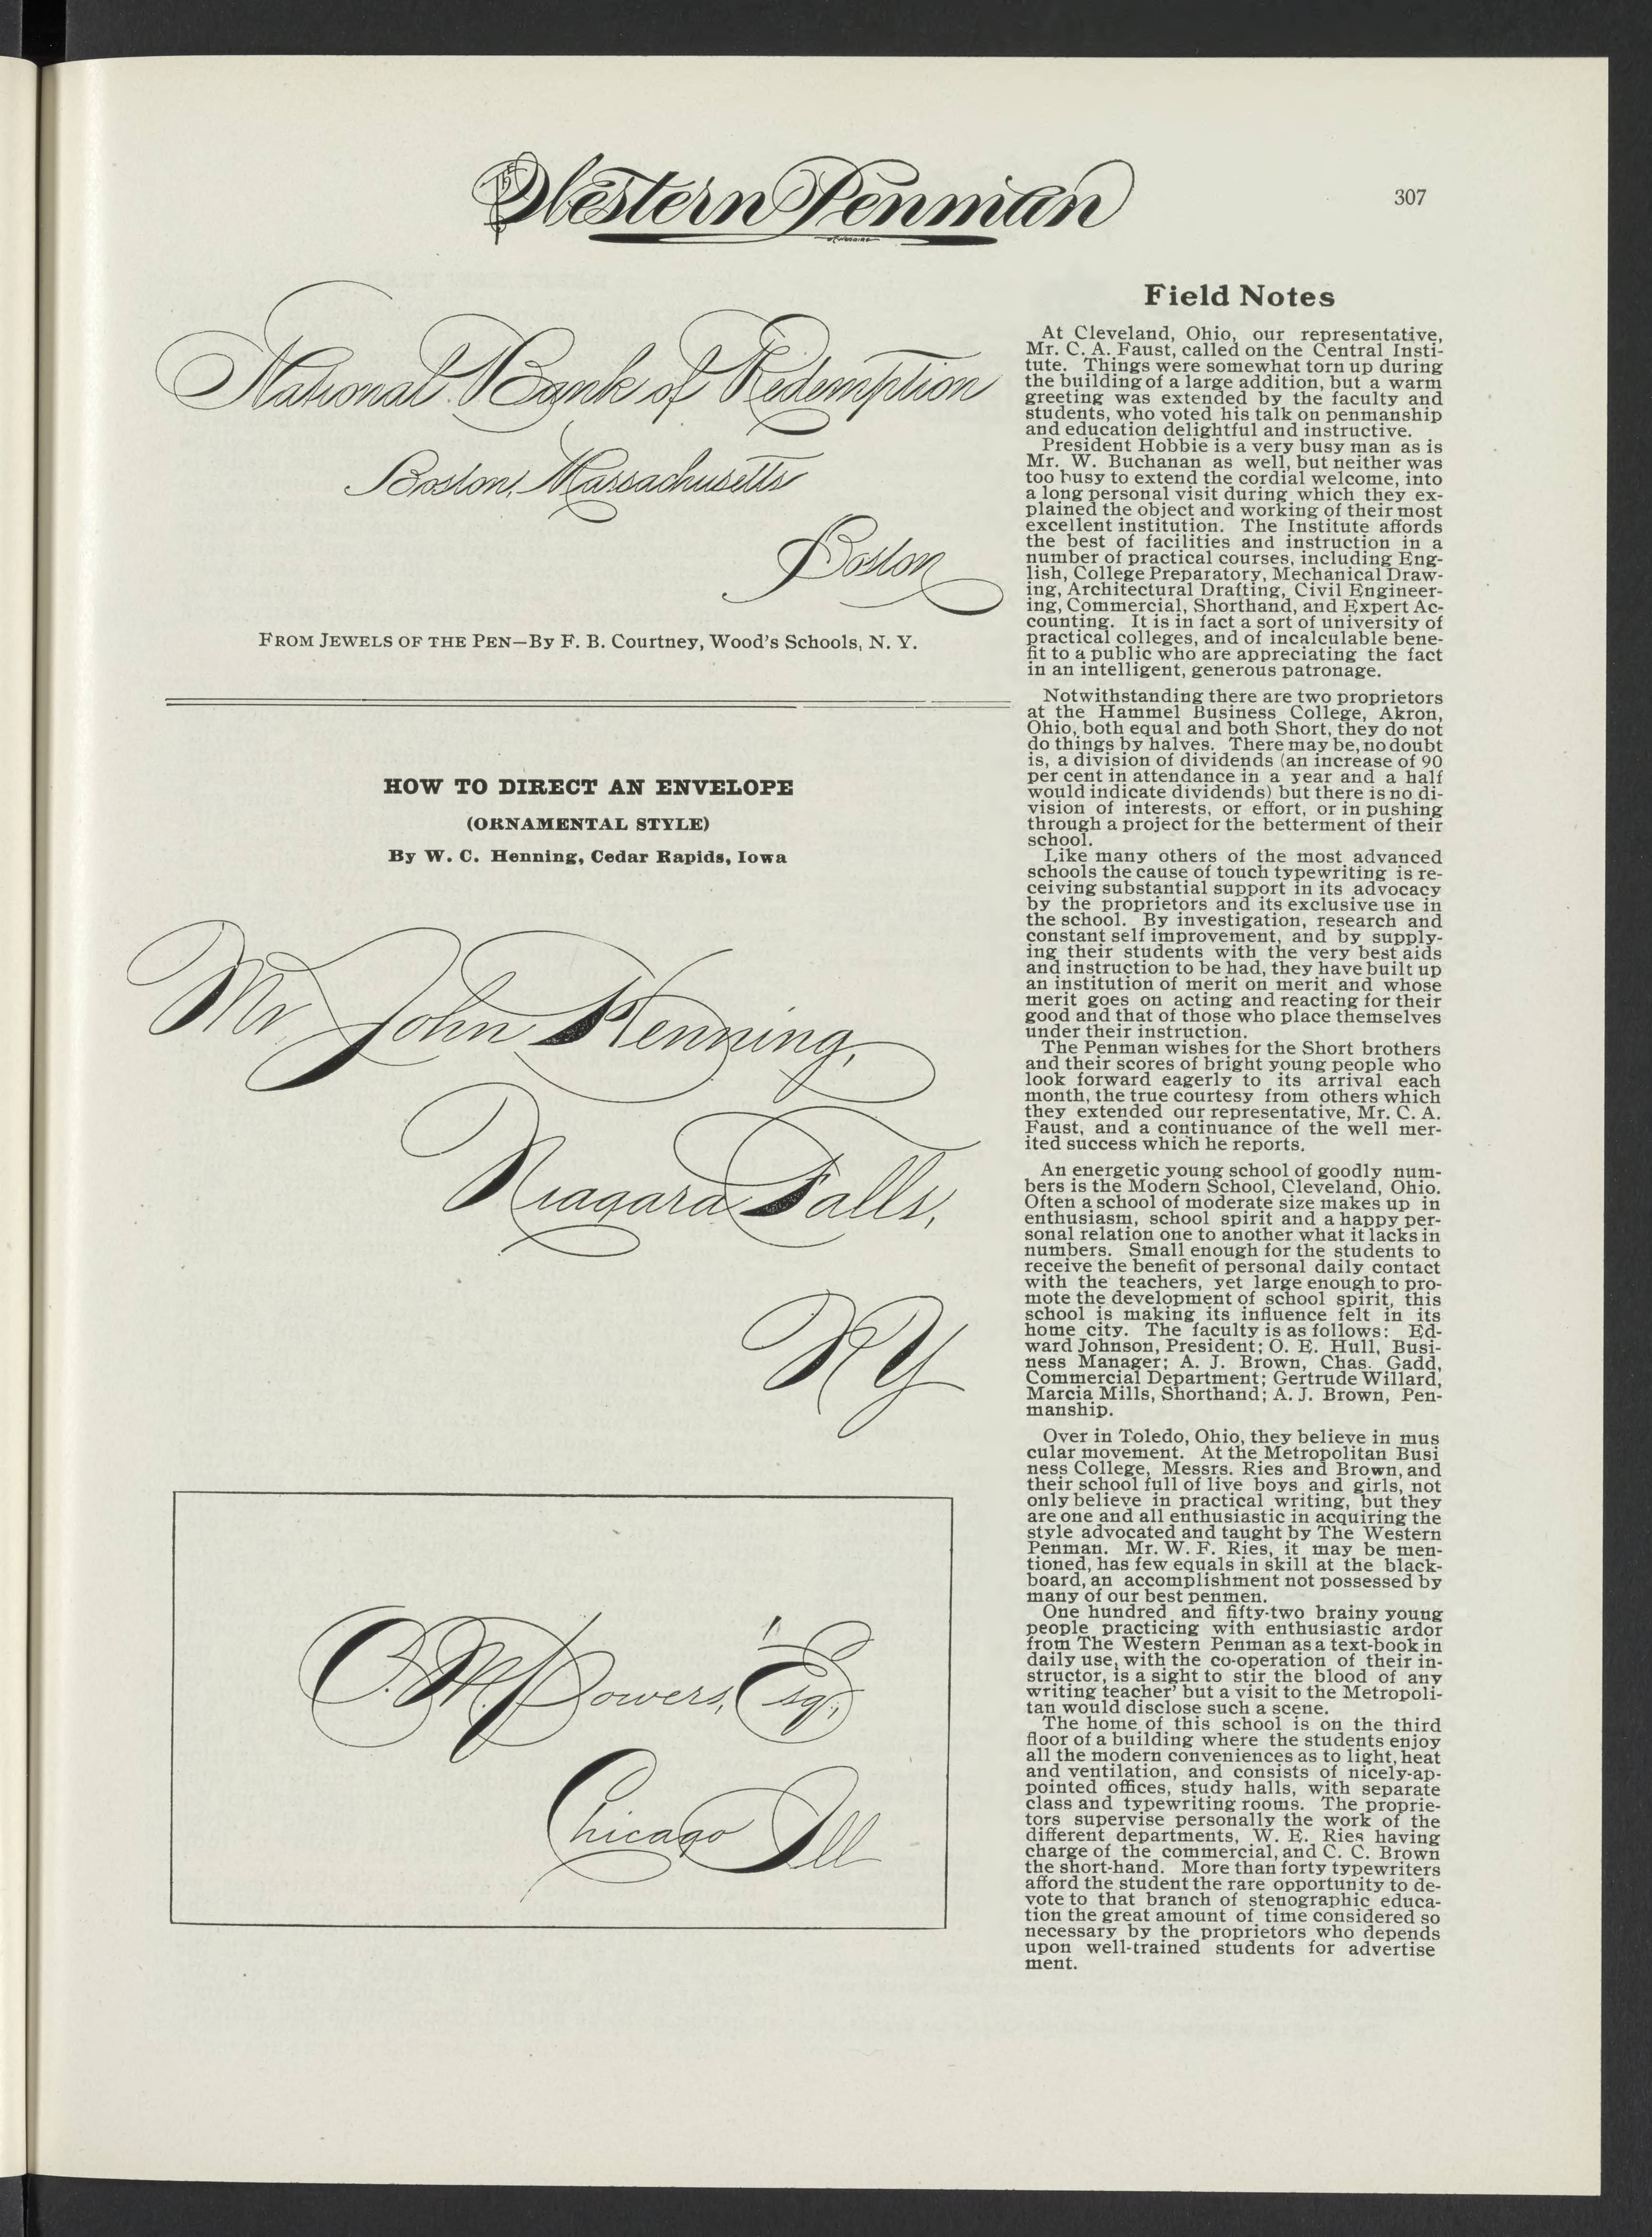 The Western Penman
307
National Bank of Redemption
Boston, Massachusetts
Boston
FROM JEWELS OF THE PEN—By F. B. Courtney, Wood's Schools, N. Y.
HOW TO DIRECT AN ENVELOPE
(ORNAMENTAL STYLE)
By W. C. Henning, Cedar Rapids, Iowa
Mr. John Henning,
Niagara Falls,
N Y
O. M. Powers, Esq.,
Chicago Ill
Field Notes
At Cleveland, Ohio, our representative,
Mr. C. A. Faust, called on the Central Insti-
tute. Things were somewhat torn up during
the building of a large addition, but a warm
greeting was extended by the faculty and
students, who voted his talk on penmanship
and education delightful and instructive.
President Hobbie is a very busy man as is
Mr. W. Buchanan as well, but neither was
too busy to extend the cordial welcome, into
a long personal visit during which they ex-
plained the object and working of their most
excellent institution. The Institute affords
the best of facilities and instruction in a
number of practical courses, including Eng-
lish, College Preparatory, Mechanical Draw-
ing, Architectural Drafting, Civil Engineer-
ing, Commercial, Shorthand, and Expert Ac-
counting. It is in fact a sort of university of
practical colleges, and of incalculable bene-
fit to a public who are appreciating the fact
in an intelligent, generous patronage.
Notwithstanding there are two proprietors
at the Hammel Business College, Akron,
Ohio, both equal and both Short, they do not
do things by halves. There may be, no doubt
is, a division of dividends (an increase of 90
per cent in attendance in a year and a half
would indicate dividends) but there is no di-
vision of interests, or effort, or in pushing
through a project for the betterment of their
school.
Like many others of the most advanced
schools the cause of touch typewriting is re-
ceiving substantial support in its advocacy
by the proprietors and its exclusive use in
the school. By investigation, research and
constant self improvement, and by supply-
ing their students with the very best aids
and instruction to be had, they have built up
an institution of merit on merit and whose
merit goes on acting and reacting for their
good and that of those who place themselves
under their instruction.
The Penman wishes for the Short brothers
and their scores of bright young people who
look forward eagerly to its arrival each
month, the true courtesy from others which
they extended our representative, Mr. C. A.
Faust, and a continuance of the well mer-
ited success which he reports.
An energetic young school of goodly num-
bers is the Modern School, Cleveland, Ohio.
Often a school of moderate size makes up in
enthusiasm, school spirit and a happy per-
sonal relation one to another what it lacks in
numbers. Small enough for the students to
receive the benefit of personal daily contact
with the teachers, yet large enough to pro-
mote the development of school spirit, this
school is making its influence felt in its
home city. The faculty is as follows: Ed-
ward Johnson, President; O. E. Hull, Busi-
ness Manager; A. J. Brown, Chas. Gadd,
Commercial Department; Gertrude Willard,
Marcia Mills, Shorthand; A. J. Brown, Pen-
manship.
Over in Toledo, Ohio, they believe in mus
cular movement. At the Metropolitan Busi
ness College, Messrs. Ries and Brown, and
their school full of live boys and girls, not
only believe in practical writing, but they
are one and all enthusiastic in acquiring the
style advocated and taught by The Western
Penman. Mr. W. F. Ries, it may be men-
tioned, has few equals in skill at the black-
board, an accomplishment not possessed by
many of our best penmen.
One hundred and fifty-two brainy young
people practicing with enthusiastic ardor
from The Western Penman as a text-book in
daily use, with the co-operation of their in-
structor, is a sight to stir the blood of any
writing teacher' but a visit to the Metropoli-
tan would disclose such a scene.
The home of this school is on the third
floor of a building where the students enjoy
all the modern conveniences as to light, heat
and ventilation, and consists of nicely-ap-
pointed offices, study halls, with separate
class and typewriting rooms. The proprie-
tors supervise personally the work of the
different departments, W. E. Ries having
charge of the commercial, and C. C. Brown
the short-hand. More than forty typewriters
afford the student the rare opportunity to de-
vote to that branch of stenographic educa-
tion the great amount of time considered so
necessary by the proprietors who depends
upon well-trained students for advertise
ment.